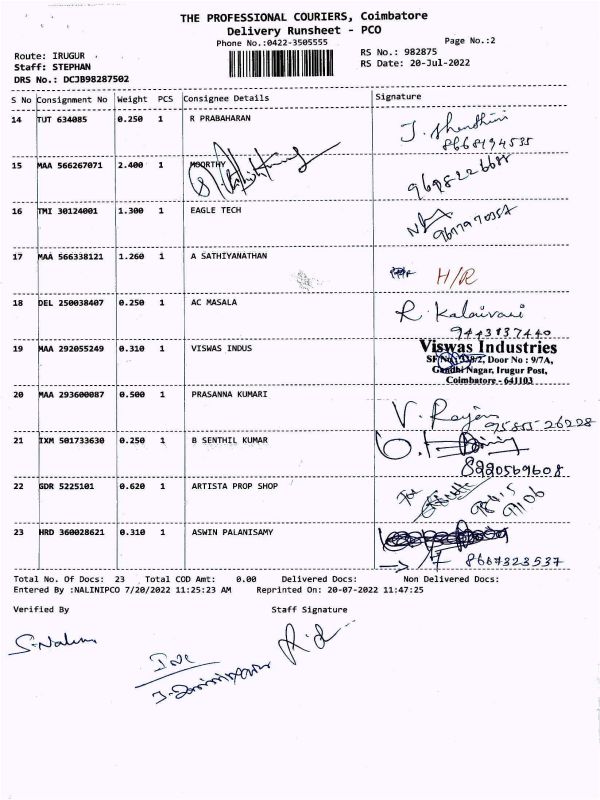 THE PROFESSIONAL COURIERS, Coimbatore
Delivery Runsheet - PCO
Phone No.:0422-3505555
Page No.:2
Route: IRUGUR
RS No.: 982875
Staff: STEPHAN
RS Date: 20-Jul-2022
DRS No.: DCJB98287502
S No Consignment No Weight PCS Consignee Details Signature
14 TUT 634085 0.250 1 R PRABAHARAN
8668194535
15 MAA 566267071 2.400 1 MOORTHY
16 TMI 30124001 1.300 1 EAGLE TECH
17 MAA 566338121 1.260 1 A SATHIYANATHAN
H/R
18 DEL 250038407 0.250 1 AC MASALA R. Kalaivani
9443137440
19 MAA 292055249 0.310 1 VISWAS INDUS Viswas Industries
Door No : 9/7A,
Gandhi Nagar, Irugur Post,
Coimbatore - 641103
20 MAA 293600087 0.500 1 PRASANNA KUMARI V. Rajan
9585526228
21 IXM 501733630 0.250 1 B SENTHIL KUMAR
8220569608
22 GDR 5225101 0.620 1 ARTISTA PROP SHOP
23 HRD 360028621 0.310 1 ASWIN PALANISAMY
8667323537
Total No. Of Docs: 23 Total COD Amt: 0.00 Delivered Docs: Non Delivered Docs:
Entered By :NALINIPCO 7/20/2022 11:25:23 AM Reprinted On: 20-07-2022 11:47:25
Verified By Staff Signature
S. Nalini